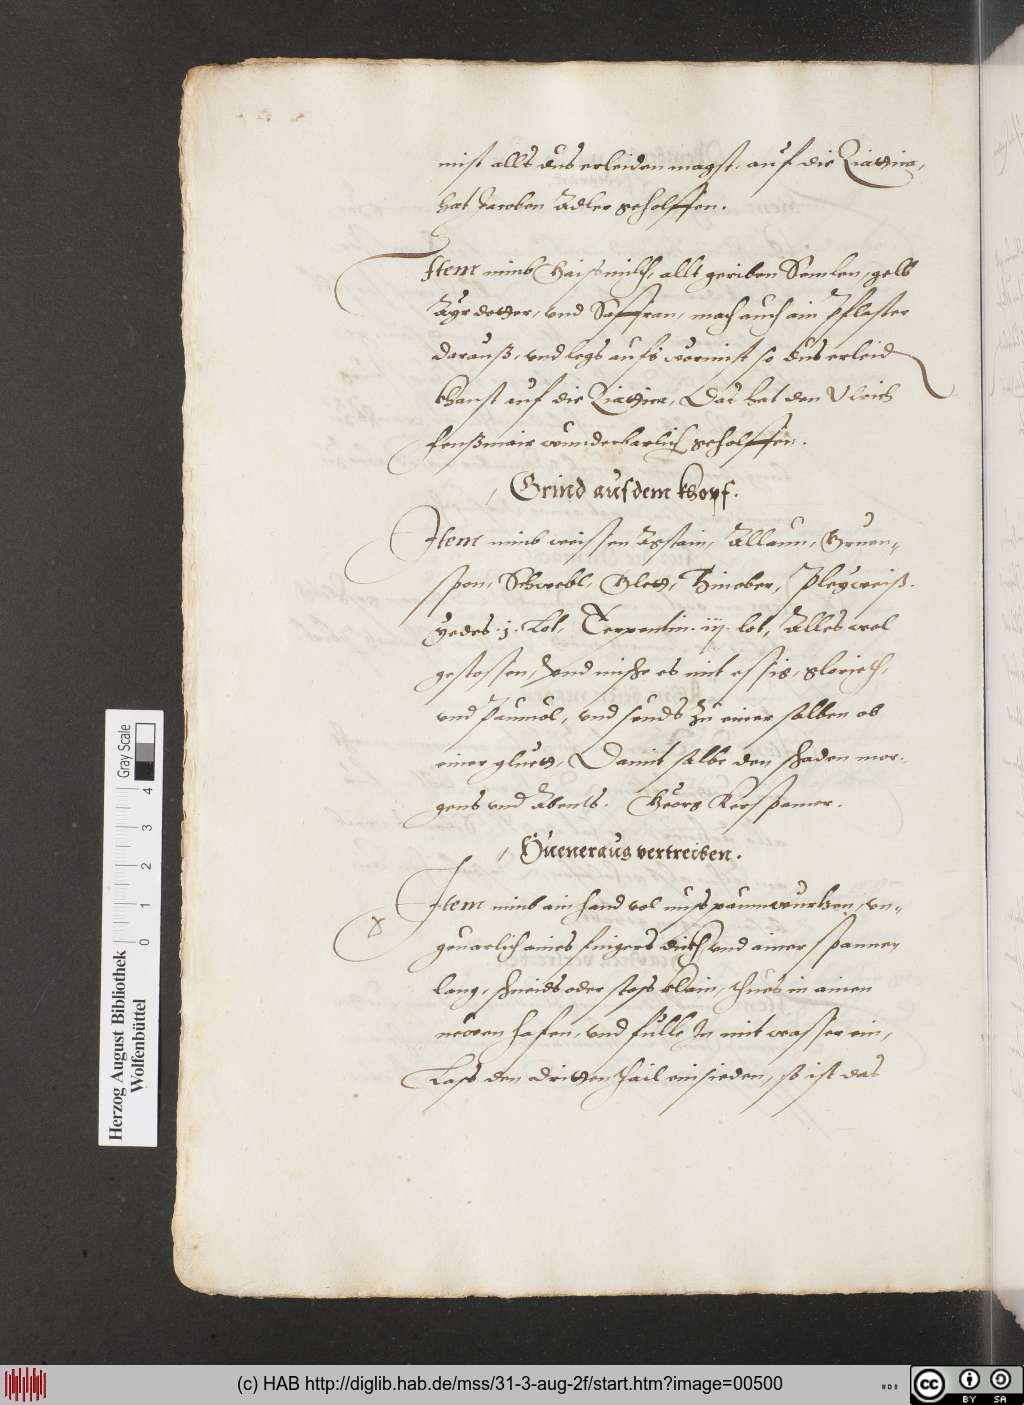 mist alls dus erleiden magst, auf die Ziattica,
hat Jacoben Adler geholffen.
Item nimb Gaißmilch, allt geriben Semlen, gelb
Ayrdotter, und Saffran, mach auch ain Pflaster
darauß, und legs aufs wermist so dus erleid
khanst auf die Ziattica, Das hat den Ulrich
Fenßmair wunderbarlich geholffen.
Grind auf dem khopf.
Item nimb weissen Agstain, Allaun, Gruen-
span, Schwebl, Glett, Zinober, Pleyweiß.
Yedes .j. Lot, Terpentin .iij. lot, Alles wol
gestossen, und misch es mit essig,
und Paumöl, und seuds zu einer salben ob
einer gluett, Damit salbe den schaden mor-
gens und Abents. Georg Kerspamer.
Hüneraug vertreiben.
Item nimb ain hand vol nusspaumwurtzen, un-
geuarlich aines fingers dick, und ainer spannen
lang, schneids oder stoss klain, thues in ainen
newen hafen, und fülle In mit wasser ein,
Lass den dritten thail einsieden, so ist das
Herzog August Bibliothek
Wolfenbüttel
0 1 2 3 4
Gray Scale
(c) HAB http://diglib.hab.de/mss/31-3-aug-2f/start.htm?image=00500
cc BY SA